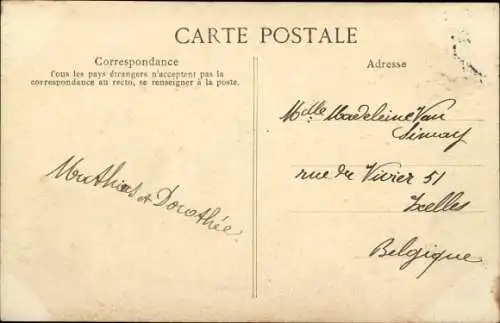 CARTE POSTALE
Correspondance
Tous les pays étrangers n'acceptent pas la
correspondance au recto, se renseigner à la poste.
Adresse
Mdlle Madeleine Van
Simay
rue du Vivier 51
Ixelles
Belgique
Mathias et Dorothée.